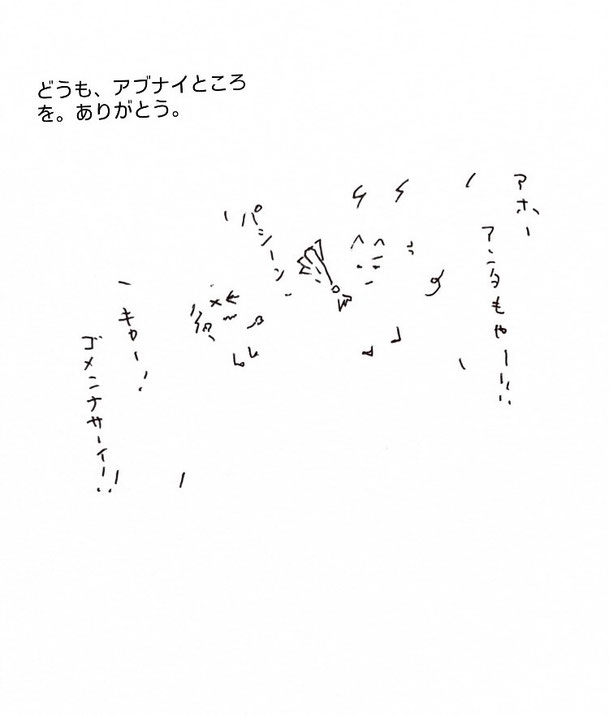 どうも、アブナイところ
を。ありがとう。
アホー
アンタもやー!!
パシーン
キャー!
ゴメンナサーイ!!